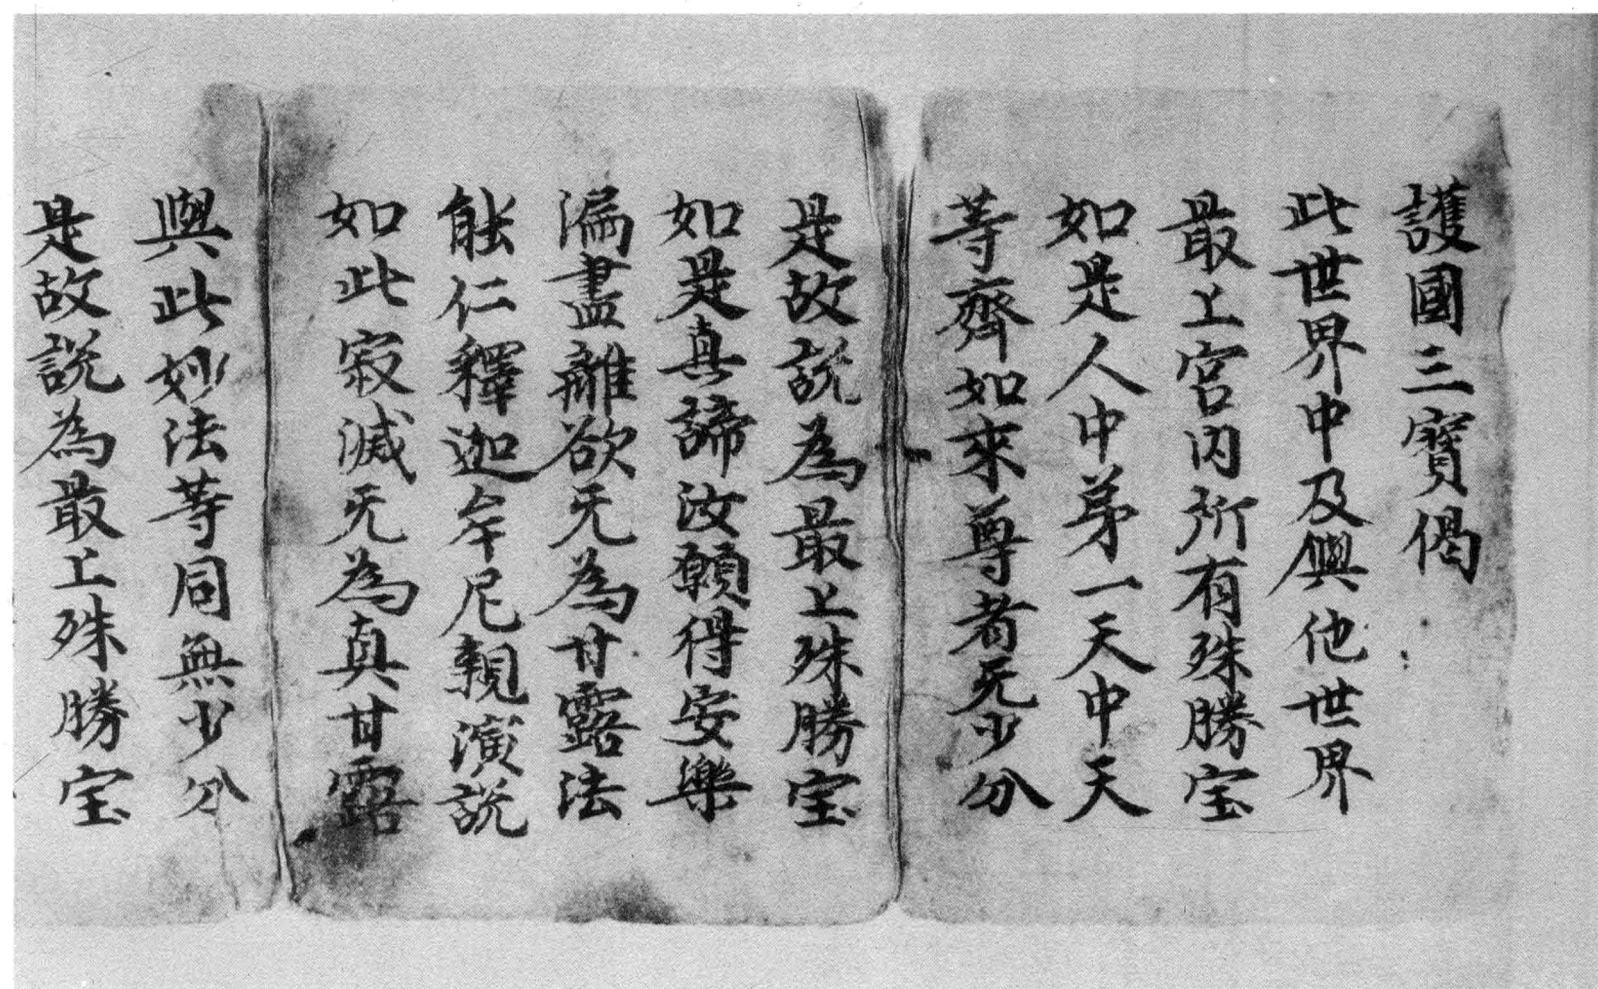 護國三寶偈
此世界中及與他世界
最上宮内所有殊勝宝
如是人中弟一天中天
等齊如來尊者无少分
是故説為最上殊勝宝
如是真諦汝願得安樂
漏盡離欲无為甘露法
能仁釋迦牟尼親演説
如此寂滅无為真甘露
與此妙法等同無少分
是故説為最上殊勝宝